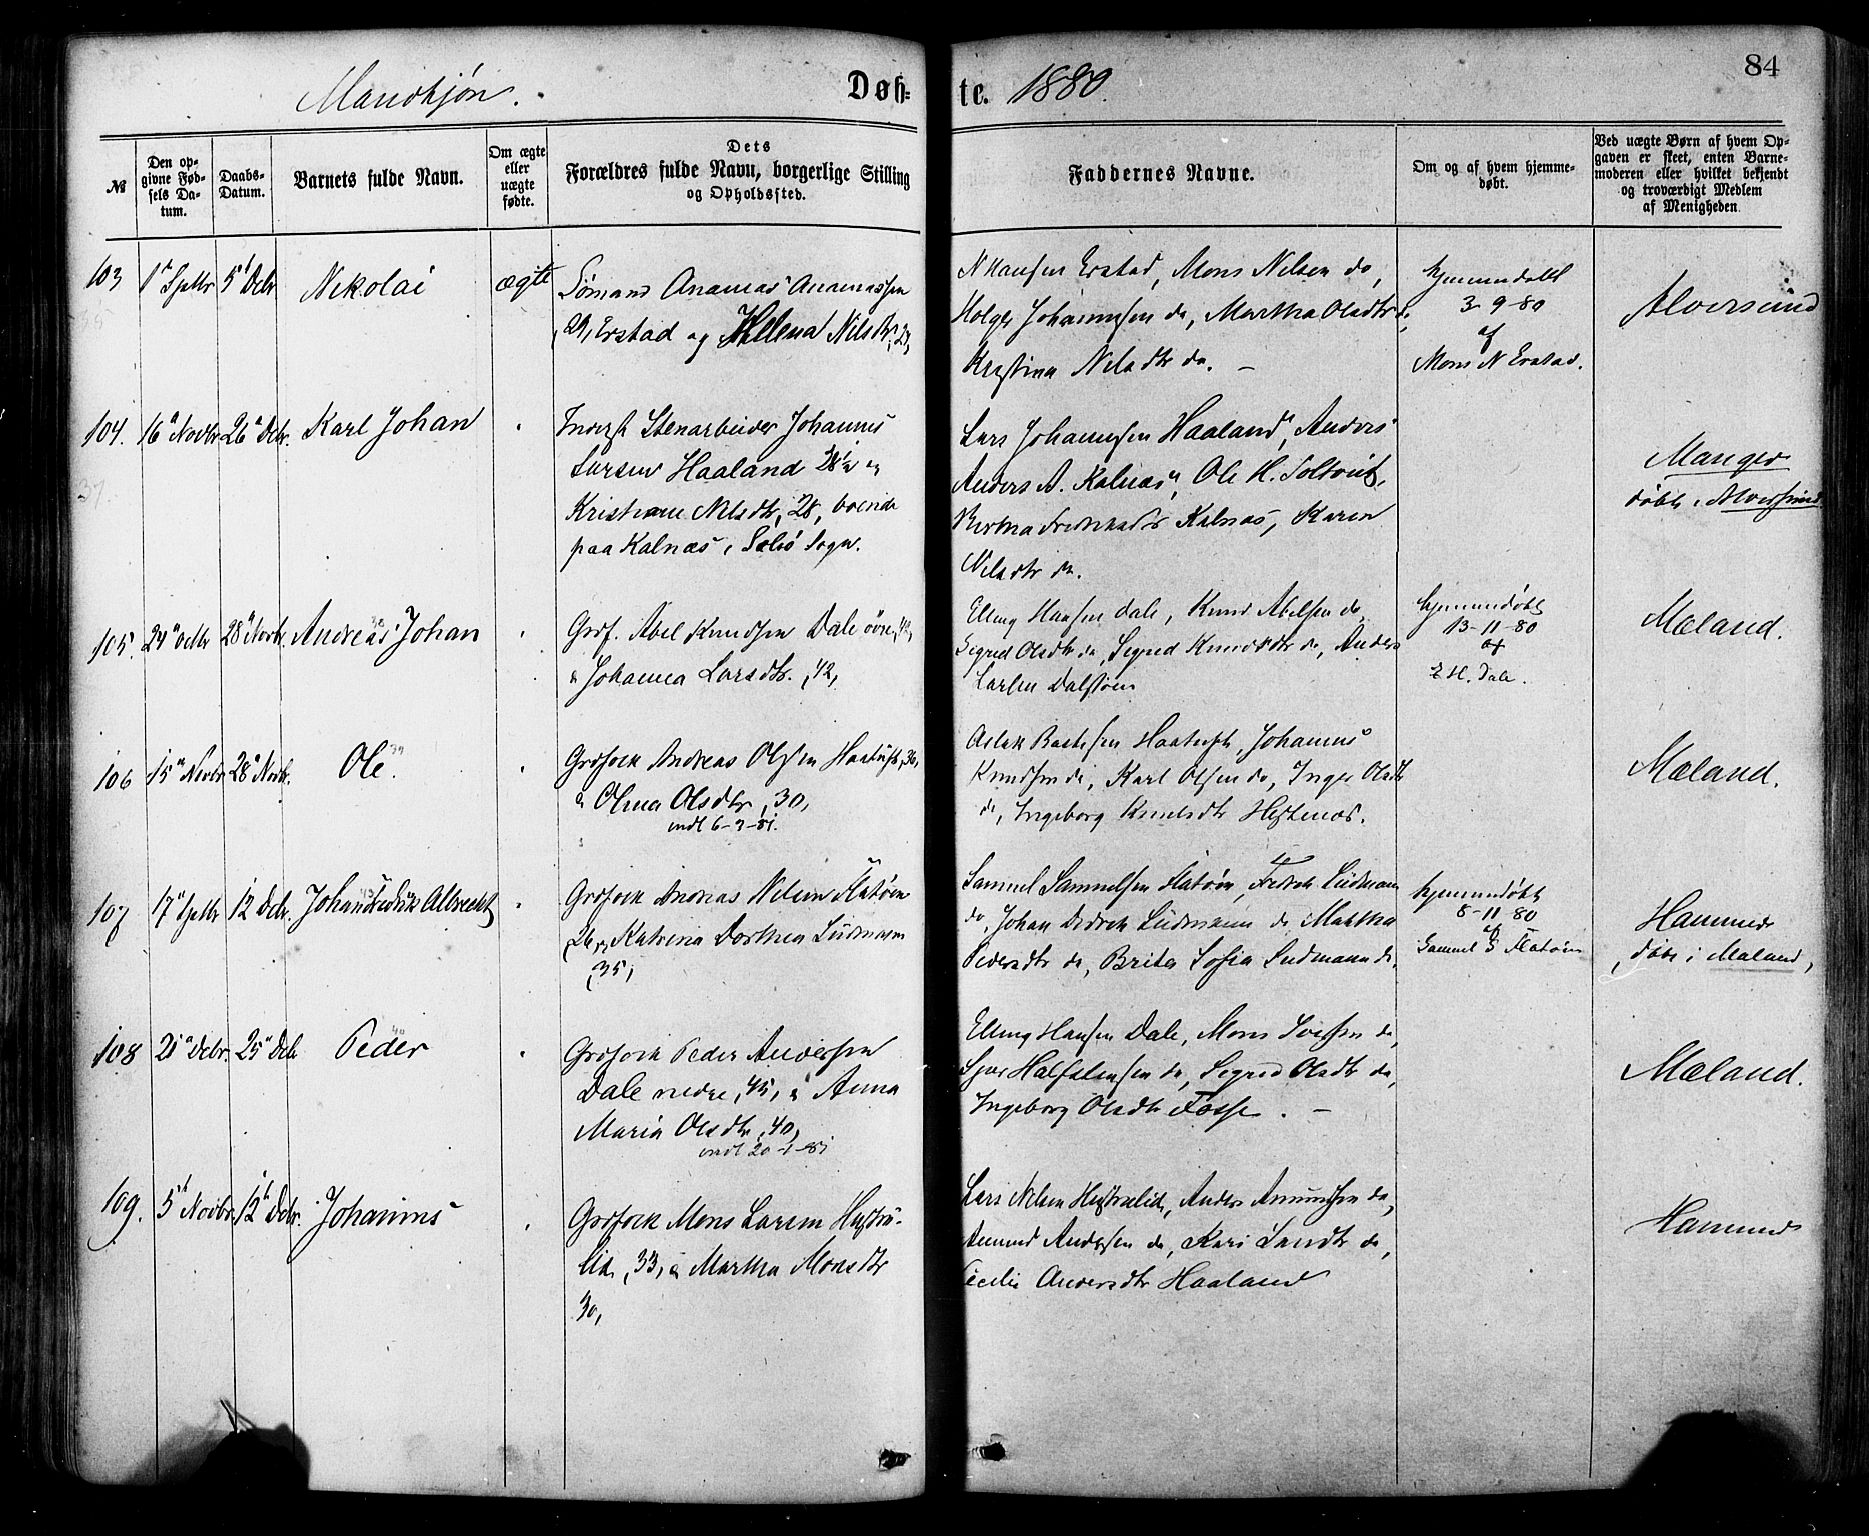 84
Mandkjøn.
Døb-
te. 1880.
№
Den op-
givne Fød-
sels Da-
tum.
Daabs-
Datum.
Barnets fulde Navn.
Om ægte
eller
uægte
fødte.
Dets
Forældres fulde Navn, borgerlige Stilling
og Opholdssted.
Faddernes Navne.
Om og af hvem hjemme-
døbt.
Ved uægte Børn af hvem Op-
gaven er skeet, enten Barne-
moderen eller hvilket bekjendt
og troværdigt Medlem
af Menigheden.
103
1 Septbr
5 Decbr
Nikolai
ægte
Sømand Ananias Ananiassen
29, Erstad og Helena Nilsdtr, 29,
N Hansen Erstad, Mons Nilsen do,
Holger Johannesen do, Martha Olsdtr do,
Kristina Nilsdtr do. —
hjemmedøbt
3-9-80
af
Mons N Erstad.
Alversund
104.
16 Novbr
26 Dcbr.
Karl Johan
Inderst Stenarbeider Johannes
Larsen Haaland 28½ og
Kristiane Nilsdtr, 28, boende
paa Kalnæs i Sæbø Sogn.
Lars Johannesen Haaland, Anders
Anders A. Kalnæs, Ole H. Toltvit,
Kalnæs, Karen
Nilsdtr do.
Manger
døbt i Alversund
105.
24 Octbr
28 Novbr.
Andreas Johan
38
Grdf. Abel Knudsen Dale øvre, 42,
& Johanna Larsdtr. 42,
Elling Hansen Dale, Knud Abelsen do,
Sigrid Olsdtr do, Sigrid Knudsdtr do, Anders
Larsen Dalstøen
hjemmedøbt
13-11-80
af
E H. Dale.
Mæland.
106
15 Novbr
28 Novbr.
Ole
39
Grdfolk Andreas Olsen Haatuft, 30,
& Olina Olsdtr, 30,
indl 6-3-81.
Aslak Bastesen Haatuft, Johannes
Knudsen do, Karl Olsen do, Inger Olsdtr
do, Ingeborg Knudsdtr Hestenæs.
Mæland.
107
17 Septbr
12 Dcbr.
Johan Fredrik Albrecht
Grdfolk Andreas Nilsen Flatøen
26, & Katrina Dorthea Lüdmann
35,
Samuel Samuelsen Flatøen, Fredrik Lüdmann
do, Johan Didrik Lüdmann do, Martha
Pedersdtr do, Brita Sofia Ludmann do.
hjemmedøbt
8-11-80
af
Samuel S Flatøen
Hammer
døbt i Mæland,
108
21 Dcbr.
25 Dcbr
Peder
40
Grdfolk Peder Andersen
Dale nedre, 45, & Anna
Maria Olsdtr, 40,
indl 20-1-81
Elling Hansen Dale, Mons Ivessen do,
Halfstensen do, Sigrid Olsdtr do,
Ingeborg Olsdtr Fosse. —
Mæland.
109.
5 Novbr.
12 Dcbr.
Johannes
Grdfolk Mons Larsen Hestra-
lid, 33, & Martha Monsdtr
30,
Lars Nilsen Hestralid, Anders Amundsen do,
Amund Andersen do, Kari Larsdtr do,
Cecilie Andersdtr Haaland
Hammer